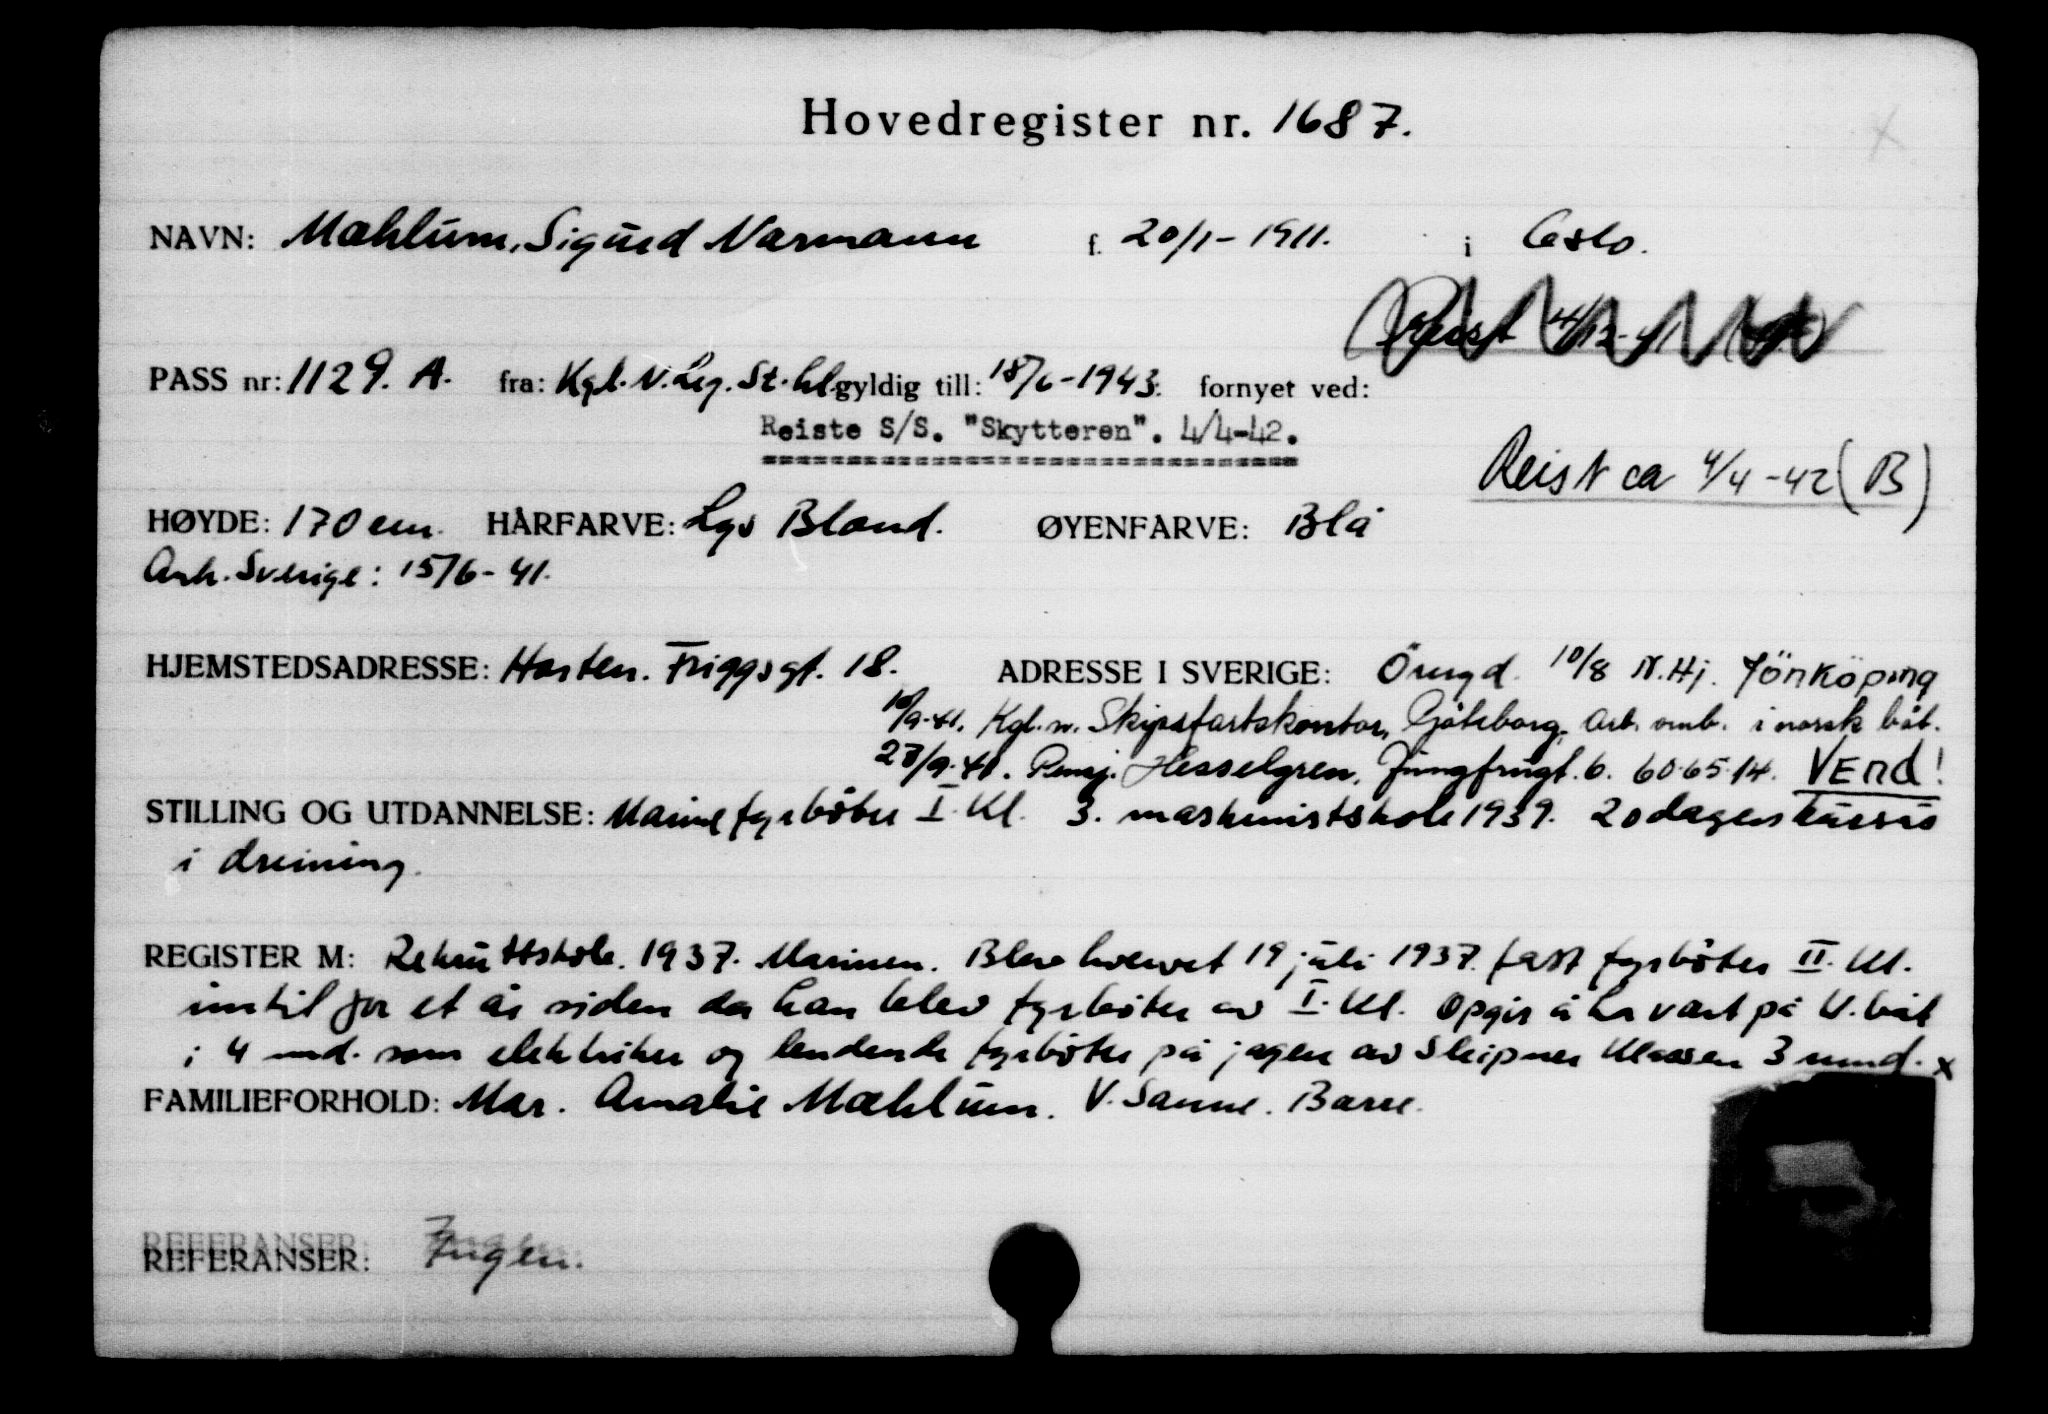 Hovedregister nr. 1687.
NAVN: Mæhlum, Sigurd Narmann f. 20/1-1911. i Oslo.
Reist 4/12-41
PASS nr: 1129. A. fra: Kgl. N. Leg. St. hl. gyldig till: 18/6-1943. fornyet ved:
Reiste S/S. "Skytteren". 4/4-42.
Reist ca 4/4-42 (B)
HØYDE: 170 cm. HÅRFARVE: Lys Blond. ØYENFARVE: Blå
Ank. Sverige: 15/6-41.
HJEMSTEDSADRESSE: Horten. Friggsgt. 18. ADRESSE I SVERIGE: Öreryd. 10/8 N.Hj. Jönköping
10/9-41. Kgl. n. Skipsfartskontor, Göteborg. Arb. omb. i norsk båt.
27/9-41. Pensj. Hesselgren, Jungfrugt. 6. 60.65.14. Vend!
STILLING OG UTDANNELSE: Marinefyrbøter I. Kl. 3. maskinistskole 1939. 20 dagers kursus
i dreining.
REGISTER M: Rekruttskole. 1937. Marinen. Blev hvervet 19 juli 1937. fast fyrbøter II. Kl.
inntil for et år siden da han blev fyrbøter av I. Kl. Opgir å ha vært på U. båt
i 4 mnd. som elektriker og lendende fyrbøter på jager av Sleipner Klassen 3 mnd. x
FAMILIEFORHOLD: Mor. Amalie Mæhlum. V. Sanne. Barre.
REFERANSER: Ingen.